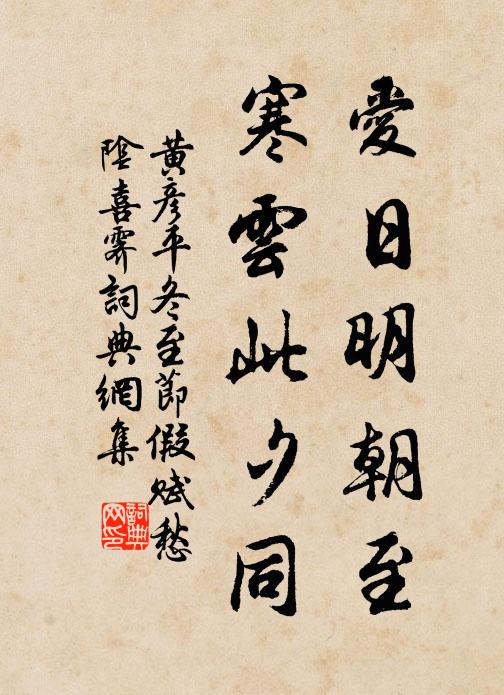 愛日明朝至
寒雲此夕同
黃彥平冬至節假賦愁
陰喜霽詞典網集
詞典
网印